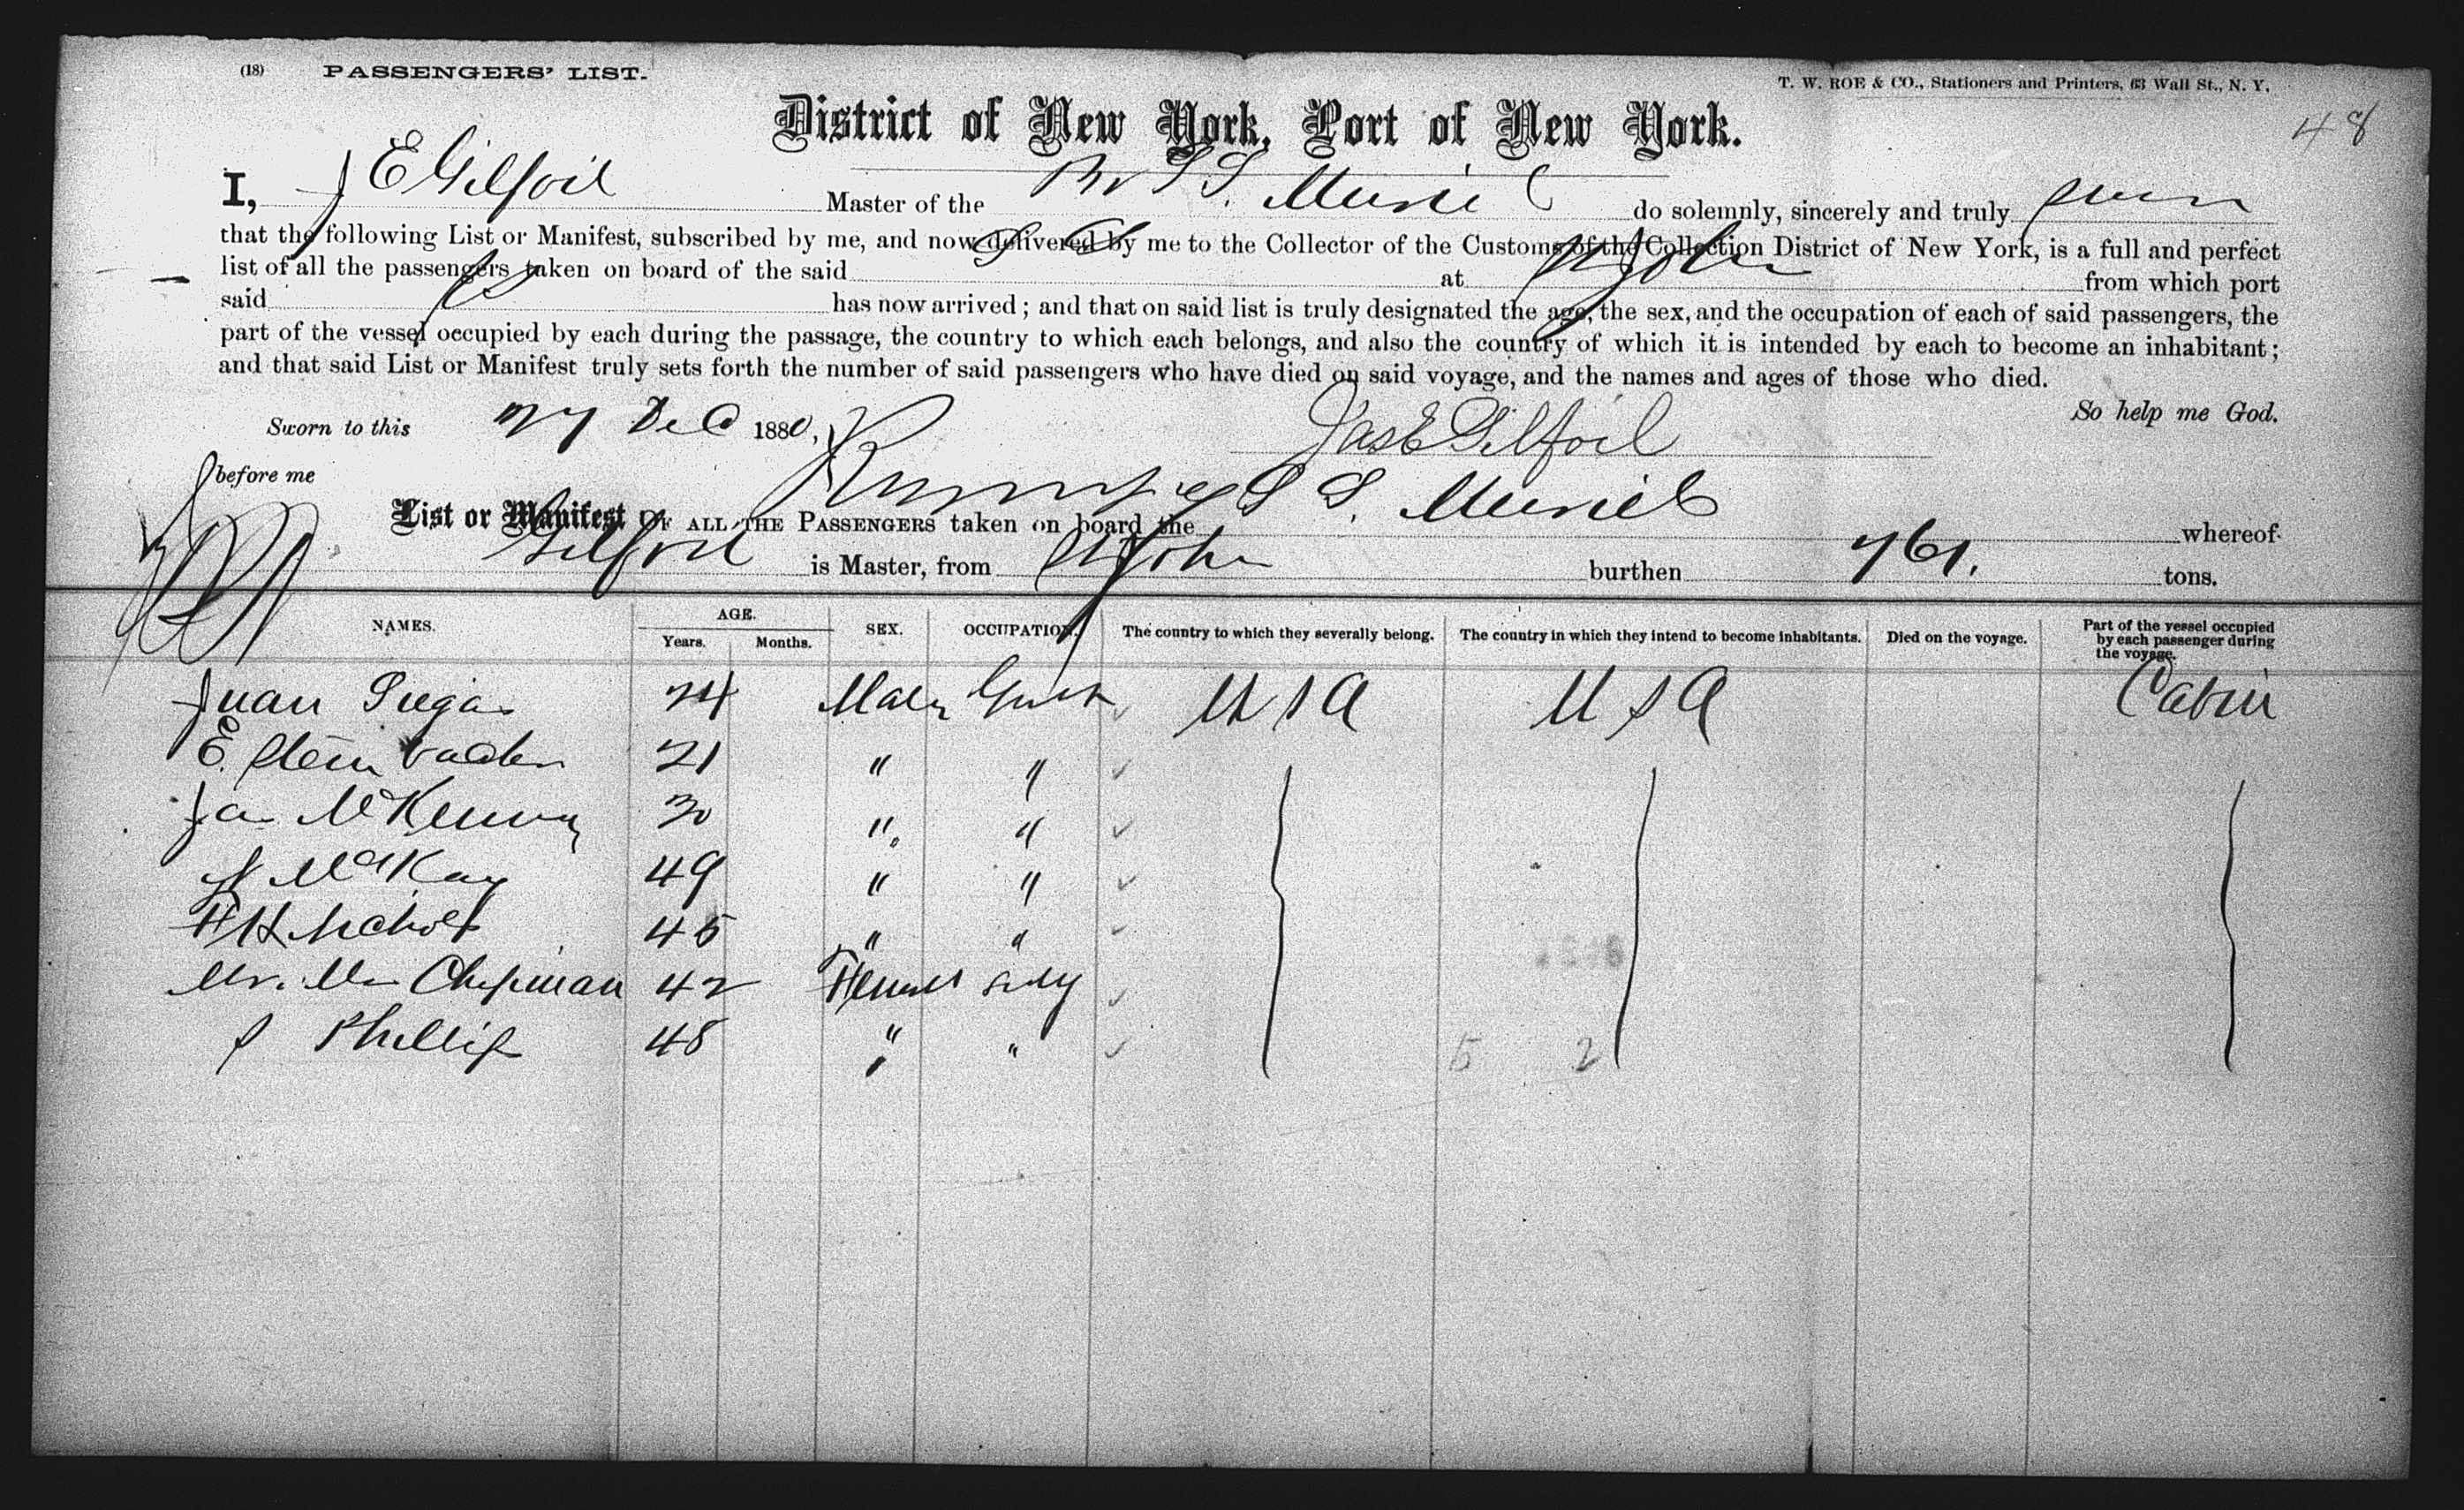 (18) PASSENGERS' LIST.
T. W. ROE & CO., Stationers and Printers, 63 Wall St., N. Y.
48
District of New York, Port of New York.
I, J E Gilfoil Master of the Br S S. Muriel do solemnly, sincerely and truly swear
that the following List or Manifest, subscribed by me, and now delivered by me to the Collector of the Customs of the Collection District of New York, is a full and perfect
list of all the passengers taken on board of the said S S at St John from which port
said SS has now arrived; and that on said list is truly designated the age, the sex, and the occupation of each of said passengers, the
part of the vessel occupied by each during the passage, the country to which each belongs, and also the country of which it is intended by each to become an inhabitant;
and that said List or Manifest truly sets forth the number of said passengers who have died on said voyage, and the names and ages of those who died.
So help me God.
Sworn to this 27 Dec 1880, Jas E Gilfoil
before me
List or Manifest OF ALL THE PASSENGERS taken on board the S S. Muriel whereof
Gilfoil is Master, from St John burthen 761. tons.
NAMES. AGE. Years. Months. SEX. OCCUPATION. The country to which they severally belong. The country in which they intend to become inhabitants. Died on the voyage. Part of the vessel occupied by each passenger during the voyage.
Juan 24 Male U S A U S A Cabin
E. 21 " "
McKenny 30 " "
McKay 49 " "
Nichols 45 " "
Chapman 42 Female Lady
S Phillips 48 " "
5 2